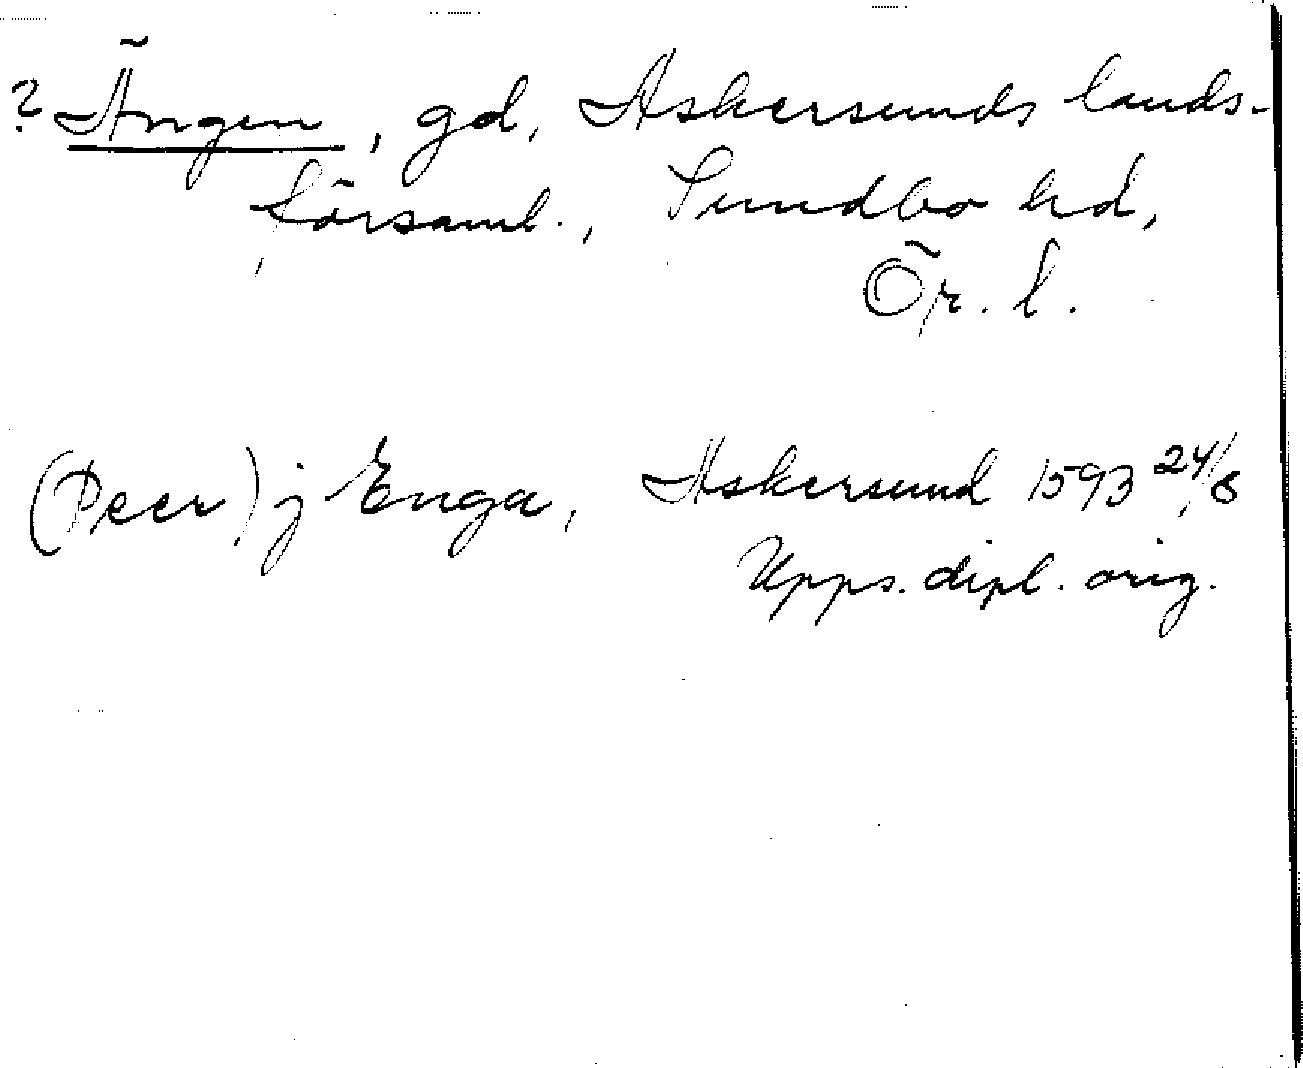 ? Ängen, gd, Askersunds lands-
församl., Sundbo hd,
Ör. l.
(Peer) j Enga, Askersund 1593 24/8
Upps. dipl. orig.